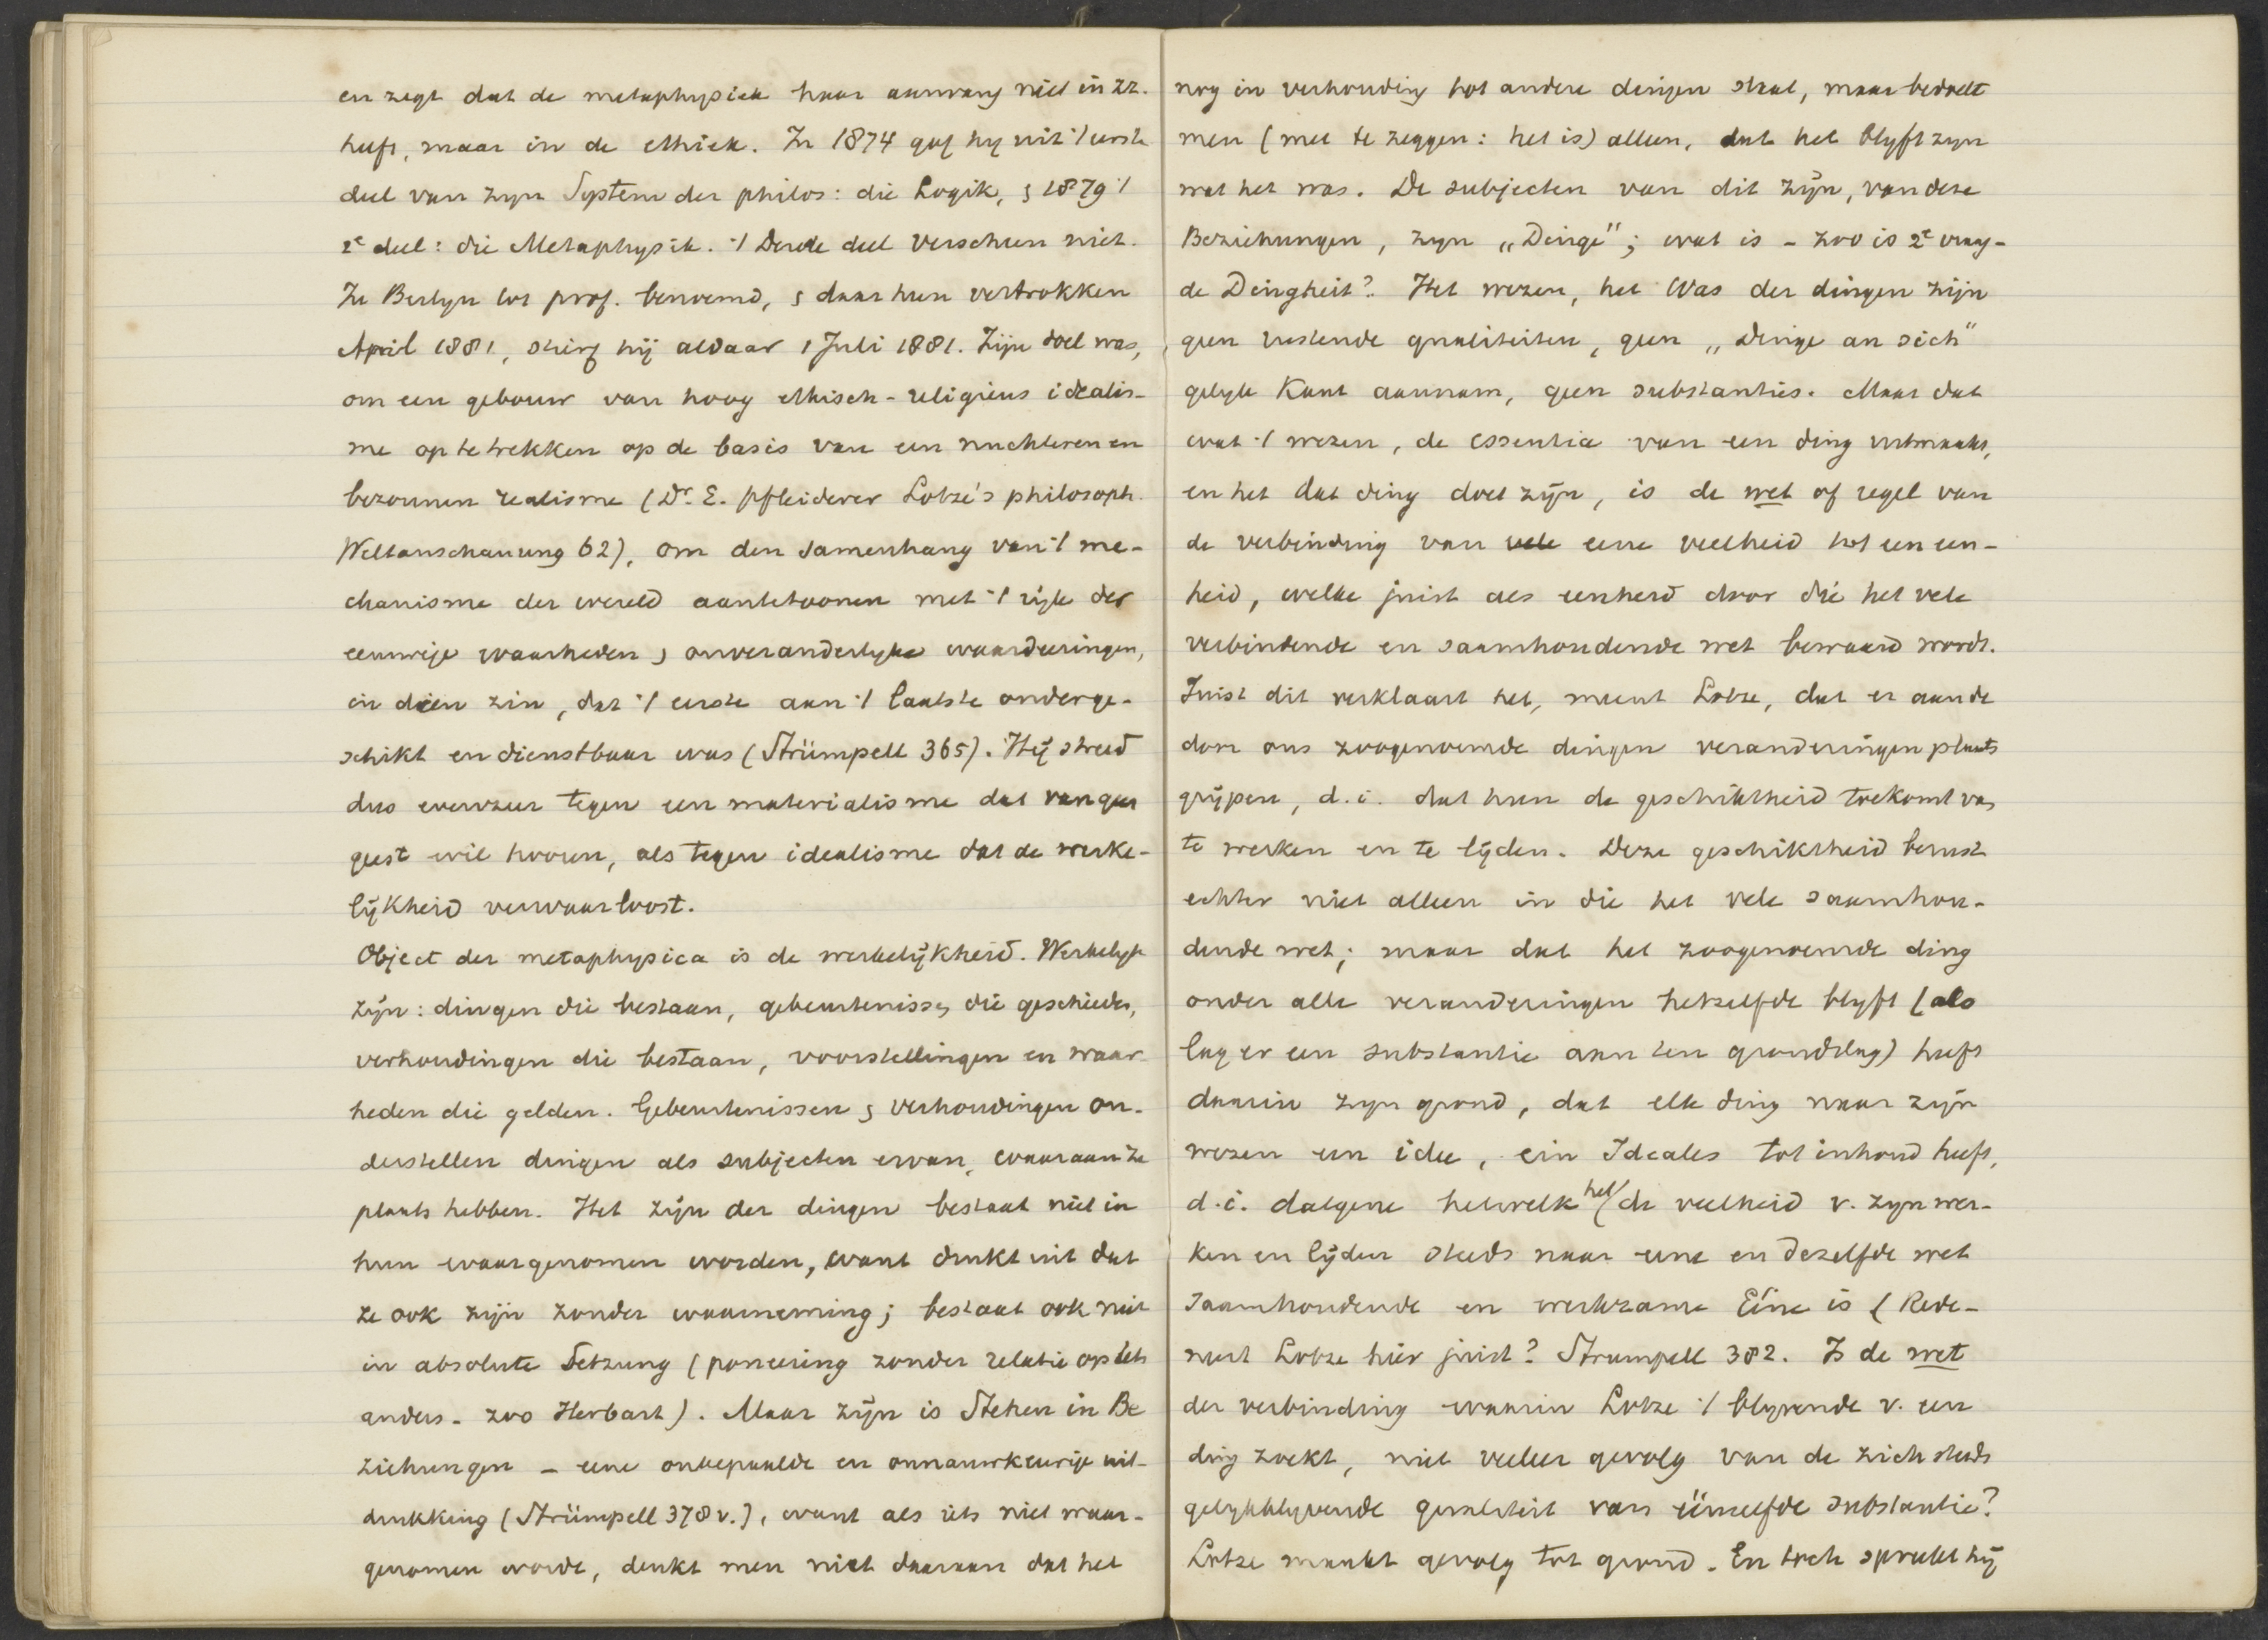 en zegt dat de metaphysiek haar aanvang niet in zz.
heeft, maar in de ethiek. In 1874 gaf hij uit 't eerste
deel van zijn System der philos: die Logik, & 1879 't
2e deel: die Metaphysik. 't Derde deel verscheen niet.
In Berlijn tot prof. benoemd, & daarheen vertrokken
April 1881, stierf hij aldaar 1 Juli 1881. Zijn doel was,
om een gebouw van hoog ethisch-religieus idealis-
me op te trekken op de basis van een nuchteren en
bezonnen realisme (Dr. E. Pfleiderer Lotze's philosoph.
Weltanschauung 62), om den samenhang van 't me-
chanisme der wereld aantetoonen met 't rijk der
eeuwige waarheden & onveranderlijke waardeeringen,
in dien zin, dat 't eerste aan 't laatste onderge-
schikt en dienstbaar was (Strümpell 365). Hij streed
dus evenzeer tegen een materialisme dat van geen
geest wil hooren, als tegen idealisme dat de werke-
lijkheid verwaarloost.
Object der metaphysica is de werkelijkheid. Werkelijk
zijn: dingen die bestaan, gebeurtenissen die geschieden,
verhoudingen die bestaan, voorstellingen en waar
heden die gelden. Gebeurtenissen & verhoudingen on-
derstellen dingen als subjecten ervan, waaraan ze
plaats hebben. Het zijn der dingen bestaat niet in
hun waargenomen worden, want drukt uit dat
ze ook zijn zonder waarneming; bestaat ook niet
in absolute Setzung (poneering zonder relatie op iets
anders - zoo Herbart). Maar zijn is Stehen in Be
ziehungen - eene onbepaalde en onnauwkeurige uit-
drukking (Strümpell 378 v.), want als iets niet waar-
genomen wordt, denkt men niet daaraan dat het
nog in verhouding tot andere dingen staat, maar bedoelt
men (met te zeggen: het is) alleen, dat het blijft zijn
wat het was. De subjecten van dit zijn, van deze
Beziehungen, zijn „Dinge"; wat is - zoo is 2e vraag -
de Dingheit? Het wezen, het Was der dingen zijn
geen rustende qualiteiten, geen „Dinge an sich"
gelijk Kant aannam, geen substanties. Maar dat
wat 't wezen, de essentia van een ding uitmaakt,
en het dat ding doet zijn, is de wet of regel van
de verbinding van vele eene veelheid tot een een-
heid, welke juist als eenheid door die het vele
verbindende en saamhoudende wet bewaard wordt.
Juist dit verklaart het, meent Lotze, dat er aan de
door ons zoogenoemde dingen veranderingen plaats
grijpen, d.i. dat hun de geschiktheid toekomt van
te werken en te lijden. Deze geschiktheid berust
echter niet alleen in die het vele saamhou-
dende wet; maar dat het zoogenoemde ding
onder alle veranderingen hetzelfde blijft (als
lag er een substantie aan ten grondslag) heeft
daarin zijn grond, dat elk ding naar zijn
wezen een idee, ein Ideales tot inhoud heeft,
d.i. datgene hetwelk het/de veelheid v. zijn wer-
ken en lijden steeds naar eene en dezelfde wet
saamhoudende en werkzame Eine is (Rede-
neert Lotze hier juist? Strumpell 382. Is de wet
der verbinding waarin Lotze 't blijvende v. een
ding zoekt, niet veeleer gevolg van de zich steeds
gelijkblijvende qualiteit van éénzelfde substantie?
Lotze maakt gevolg tot grond. En toch spreekt hij